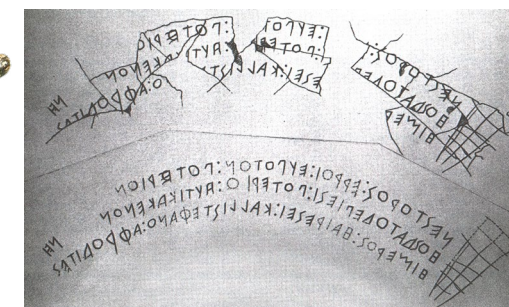 ΝΕΣΤΟΡΟΣ: ΕΥΠΟΤ :ΠΟΤΕΡΙΟ
ΗΟΣΔΑΤΟΔΕΠ ΠΟΤΕΡ :ΑΥΤΙΚΑΚΕΝΟΝ
ΗΙΜΕΡ ΕΣΕΙ:ΚΑΛΛΙΣΤ Ο:ΑΦΡΟΔΙΤΕΣ
ΝΕΣΤΟΡΟΣ:ΕΡΡΟΙ:ΕΥΠΟΤΟΝ:ΠΟΤΕΡΙΟΝ
ΗΟΣΔΑΤΟΔΕΠΙΕΣΙ:ΠΟΤΕΡΙΟ:ΑΥΤΙΚΑΚΕΝΟΝ
ΗΙΜΕΡΟΣ:ΗΑΙΡΕΣΕΙ:ΚΑΛΛΙΣΤΕΦΑΝΟ:ΑΦΡΟΔΙΤΕΣ